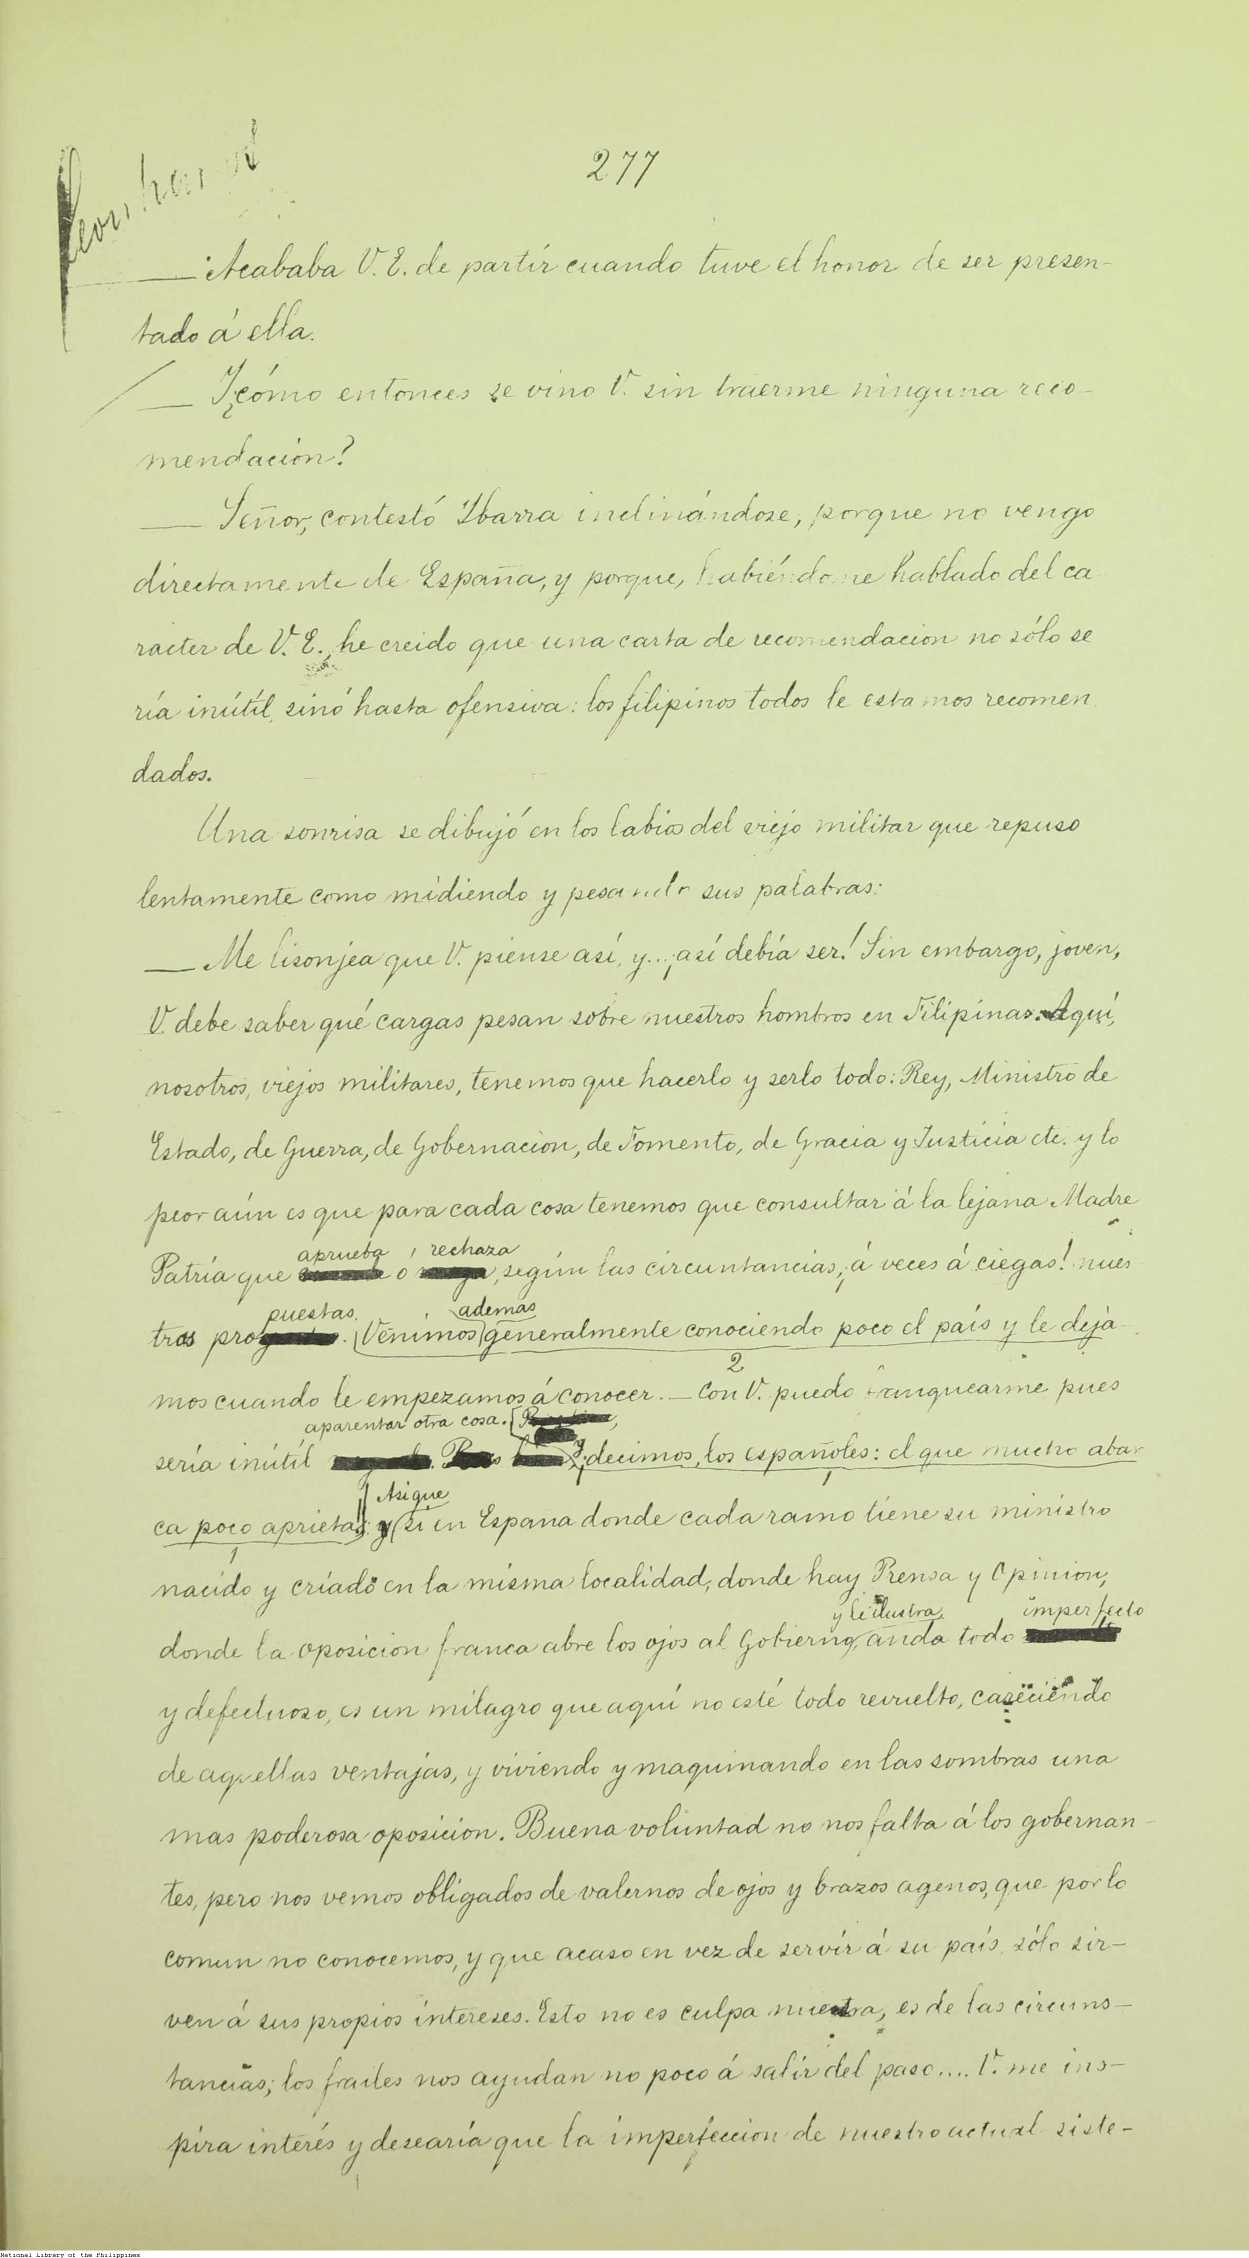 277
— Acababa V. E. de partir cuando tuve el honor de ser presen-
tado á ella.
— Y ¿cómo entonces se vino V. sin traerme ninguna reco-
mendación?
— Señor, contestó Ibarra inclinándose, porque no vengo
directamente de España, y porque, habiéndome hablado del ca
racter de V. E., he creido que una carta de recomendacion no sólo se
ría inútil, sinó hasta ofensiva: los filipinos todos le estamos recomen
dados.
Una sonrisa se dibujó en los labios del viejo militar que repuso
lentamente como midiendo y pesando sus palabras:
— Me lisonjea que V. piense así, y... ¡así debía ser! Sin embargo, joven,
V. debe saber qué cargas pesan sobre nuestros hombros en Filipinas. Aquí,
nosotros, viejos militares, tenemos que hacerlo y serlo todo: Rey, Ministro de
Estado, de Guerra, de Gobernacion, de Fomento, de Gracia y Justicia etc. y lo
peor aún es que para cada cosa tenemos que consultar á la lejana Madre
aprueba rechaza
Patría que o , según las circuntancias, ¡á veces á ciegas! nues
puestas. ademas
tras pro . Venimos generalmente conociendo poco el país y le deja-
2
mos cuando le empezamos á conocer. — Con V. puedo franquearme pues
aparentar otra cosa.
sería inútil . Y decimos, los españoles: el que mucho abar
Asi que
ca poco aprieta; si en España donde cada ramo tiene su ministro
1
nacido y criado en la misma localidad, donde hay Prensa y Opinion,
y le ilustra, imperfecto
donde la oposicion franca abre los ojos al Gobierno, anda todo
y defectuoso, es un milagro que aquí no esté todo revuelto, careciendo
de aquellas ventajas, y viviendo y maquinando en las sombras una
mas poderosa oposicion. Buena voluntad no nos falta á los gobernan-
tes, pero nos vemos obligados de valernos de ojos y brazos agenos, que por lo
comun no conocemos, y que acaso en vez de servír á su país, sólo sir-
ven á sus propios intereses. Esto no es culpa nuestra, es de las circuns-
tancias; los frailes nos ayudan no poco á salír del paso.... V. me ins-
pira interés y desearía que la imperfeccion de nuestro actual siste-
National Library of the Philippines